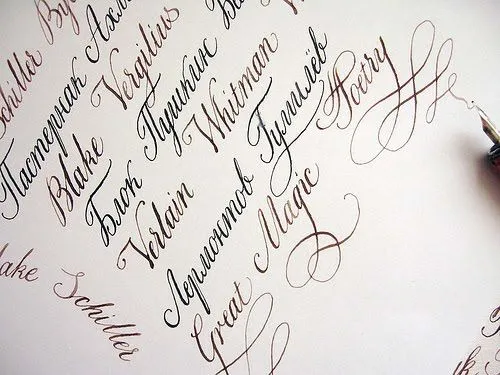 Schiller By
Пастернак Ахм
Blake Vergilius
Блок Пушкин Ба
Verlain Whitman
Лермонтов Гумилёв
Great Magic Poetry
ake Schiller